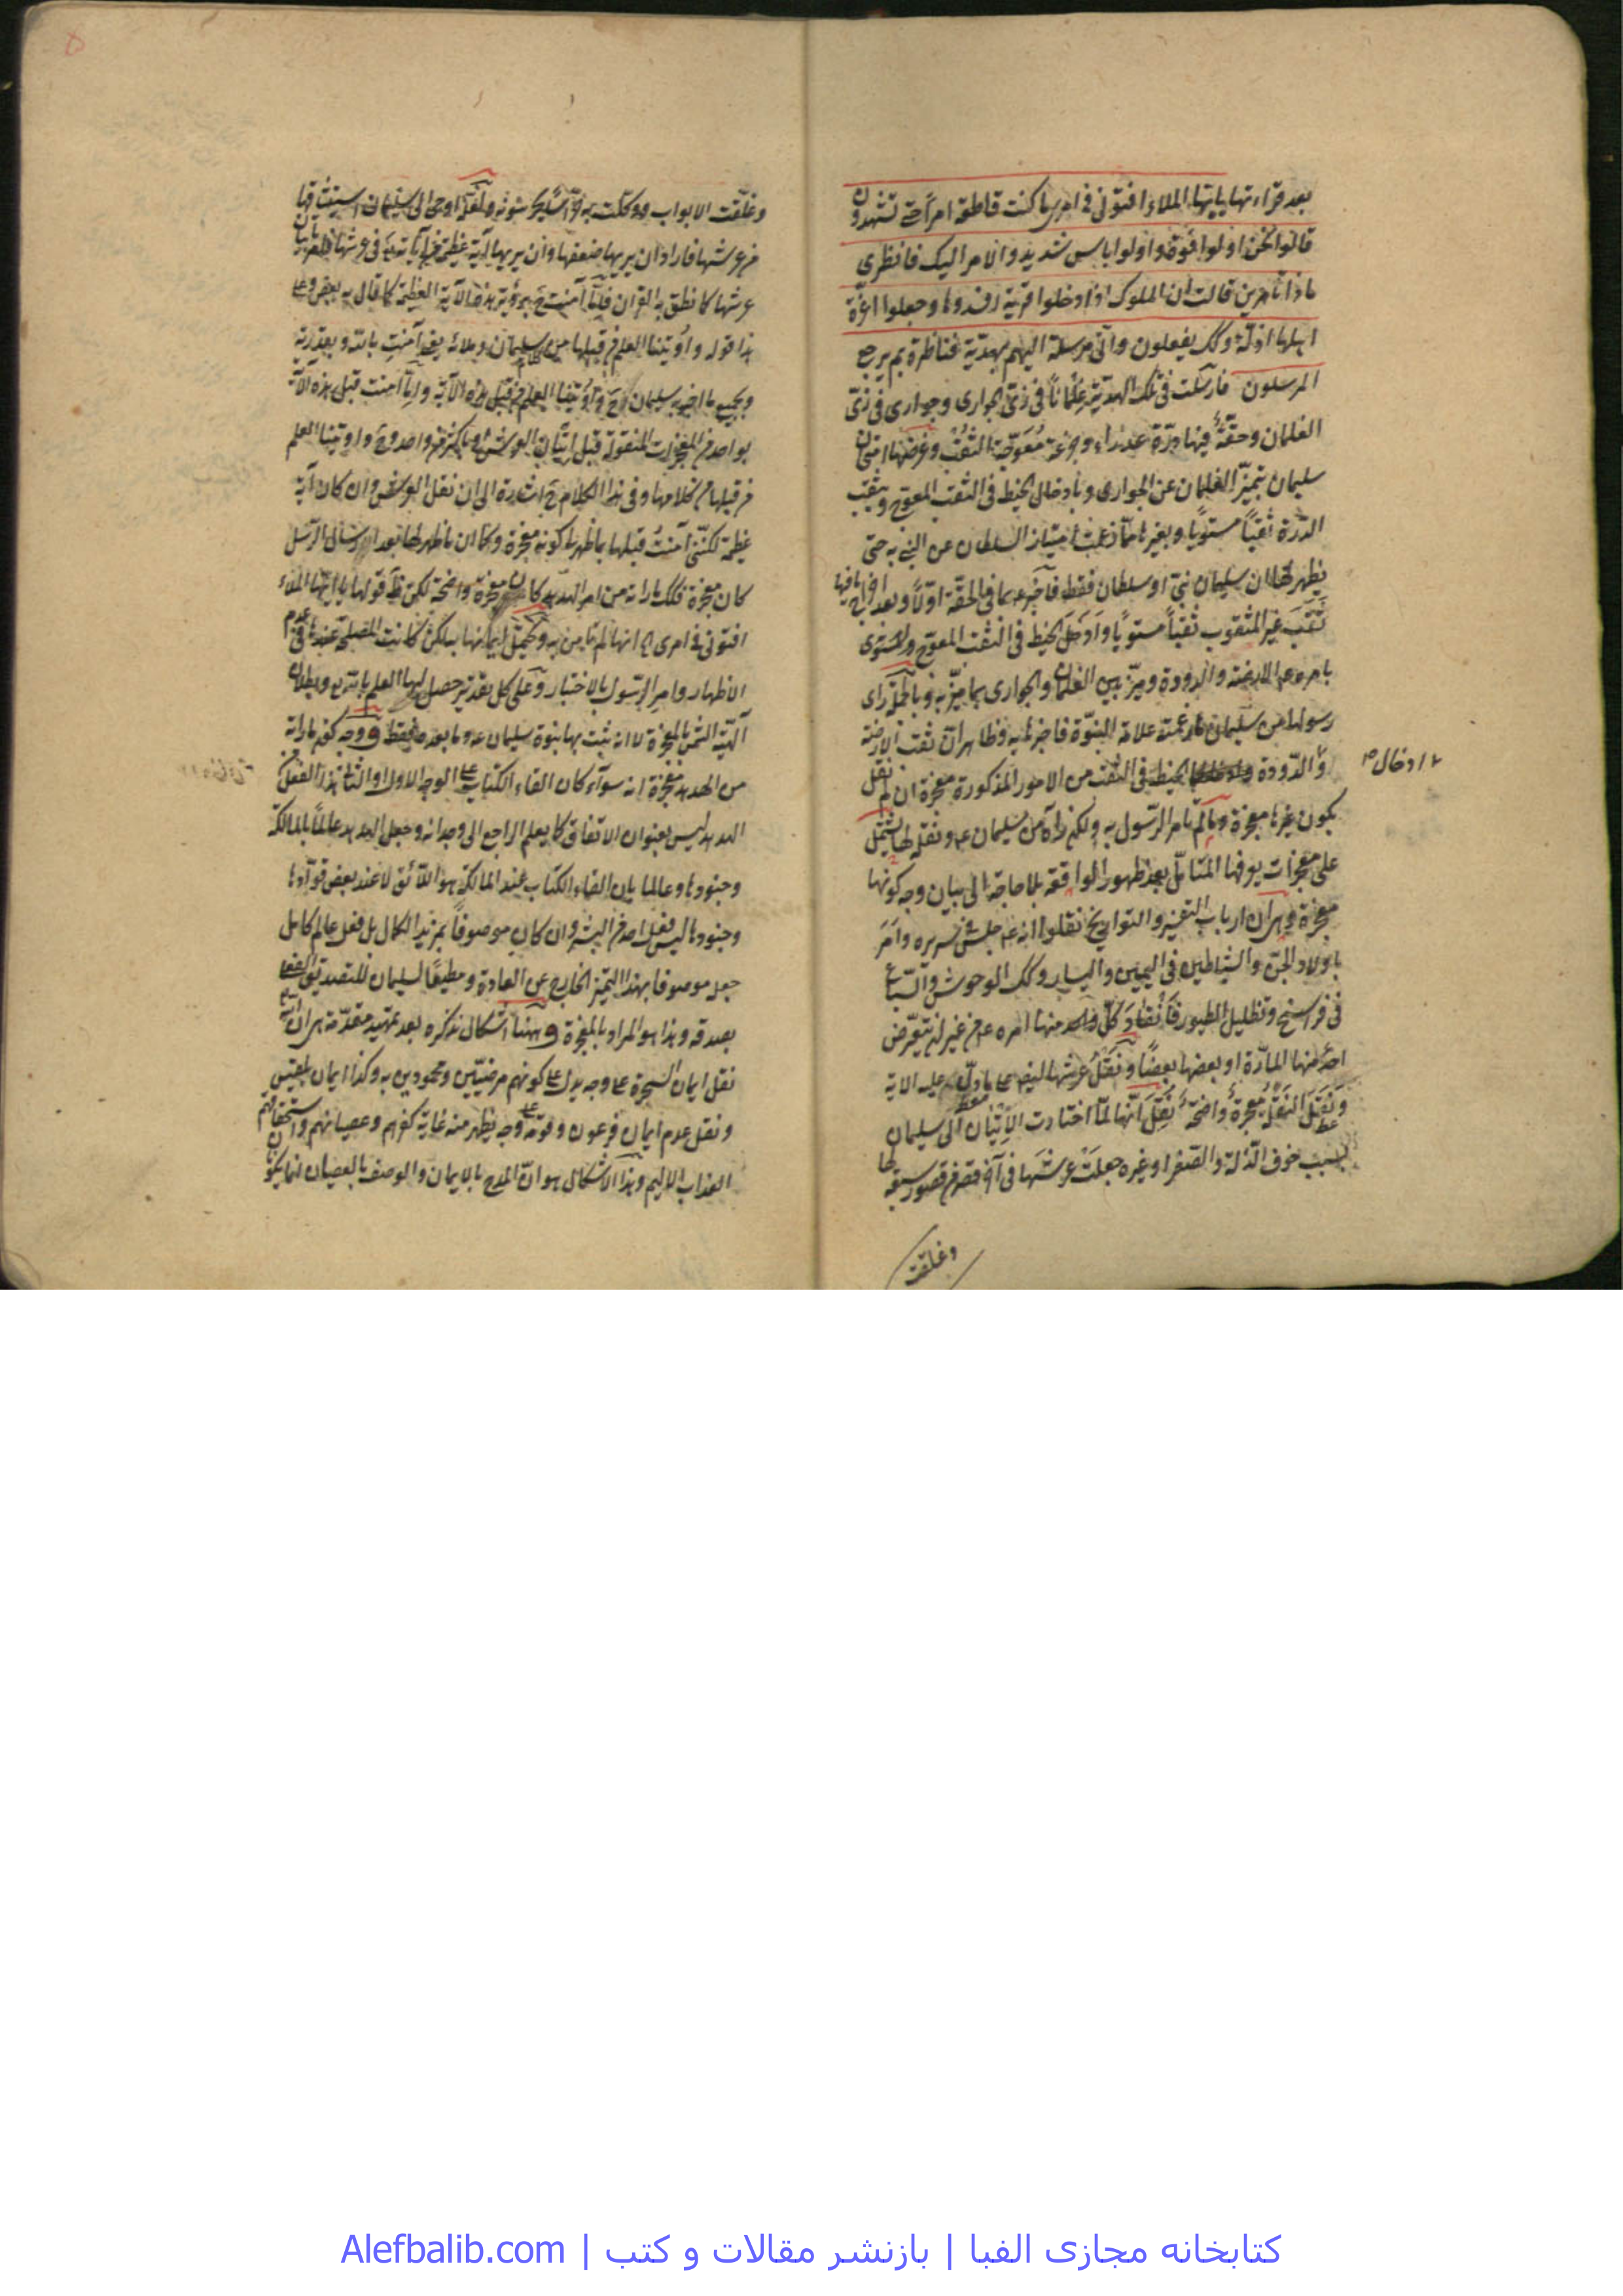 بعد قراءتها يا ايها الملاء افتونى فى امرى ما كنت قاطعة امرا حتى تشهدون
قالوا نحن اولوا قوة واولوا باس شديد والامر اليك فانظرى
ماذا تامرين قالت ان الملوك اذا دخلوا قرية افسدوها وجعلوا اعزة
اهلها اذلة وكك يفعلون وانى مرسلة اليهم بهدية فناظرة بم يرجع
المرسلون فارسلت فى تلك الهدية غلمانا فى زى الجوارى وجوارى فى زى
الغلمان وحقة فيها درة عذراء وجزعة معوجة الثقب وغرضها امتحان
سليمان بتميز الغلمان عن الجوارى وبادخال الخيط فى الثقب المعوج وبثقب
الدرة ثقبا مستويا وبغيرها مما زعمت امتياز السلطان عن النبى به حتى
يظهر لها ان سليمان نبى او سلطان فقط فاخبر عما فى الحقة اولا وبعد اخراج ما فيها
ثقب غير المثقوب ثقبا مستويا وادخل الخيط فى الثقب المعوج والمستوى
بامره الارضة والدودة وميز بين الغلمان والجوارى بما ميز به وبالجملة راى
رسولها من سليمان ما زعمته علامة النبوة فاخبرها به وظاهر ان ثقب الارضة
والدودة الخيط فى الثقب من الامور المذكورة معجزة ان لم نقل
ادخال صح
بكون غيرها معجزة وما لم يامر الرسول به ولكن راه من سليمان ونقله لها يشتمل
على معجزات يعرفها المتامل بعد ظهور الواقعة بلا حاجة الى بيان وجه كونها
معجزة ارباب التفسير والتواريخ نقلوا انه جلس على سريره وامر
باولاد الجن والشياطين فى اليمين واليسار وكك الوحوش والسباع
فى فراسخ وتظليل الطيور فانقاد كل واحد منها امره من غير ان يتعرض
احد منها المارة او بعضها بعضا ونقل عرشها اليه على ما دل عليه الاية
ونقل النقل معجزة واضحة نقل انها لما اختارت الاتيان الى سليمان
بسبب خوف الذلة والصغر او غيره جعلت عرشها فى آخر قصر من قصور سبعة لها
وغلقت
وغلقت الابواب ووكلت به حرسا يحرسونه ولعله اوحى الى سليمان
من عرشها فاراد ان يريها ضعفها وان يريها آية عظيمة من آياته فى عرشها
عرشها كما نطق به القران آمنت برؤية هذه الآية العظيمة كما قال به بعض
هذا قوله واوتينا العلم من قبلها من سليمان وملائه آمنت بالله وبقدرته
وبجميع ما اخبر به سليمان واوتينا العلم من قبل هذه الآية آمنت قبل هذه الآية
بواحد من المعجزات المنقولة قبل اتيان العرش او باكثر من واحد واوتينا العلم
من قبلها من كلامها وفى هذا الكلام اشارة الى ان نقل العرش وان كان آية
عظيمة لكننى آمنت قبلها بما ظهر لى كونه معجزة وكما ان ما ظهر لها بعد ارسال الرسل
كان معجزة فكك ما راته من امر الهدهد كان معجزة واضحة لكن قولها يا ايها الملاء
افتونى فى امرى انها لم تامن به ويحتمل ايمانها به لكن كانت المصلحة عندها فى عدم
الاظهار وامر الرسول بالاختبار وعلى كل تقدير حصل لها العلم بالله وبطلان
آلهية الشمس بالمعجزة لا انه يثبت بها نبوة سليمان وما بعدها فقط ووجه كون ما راته
من الهدهد معجزة انه سواء كان القاء الكتاب على الوجه الاول او الثانى هذا الفعل من
الهدهد ليس بعنوان الاتفاق كما يعلم الراجع الى وجدانه وجعل الهدهد عالما بالمالكة
وجنودها وعالما بان القاء الكتاب عند المالكة هو اللائق لا عند بعض قوادها
وجنودها ليس فعل احد من البشر وان كان موصوفا بمزيد الكمال بل فعل عالم كامل
جعله موصوفا بهذا التميز الخارج عن العادة ومطيعا لسليمان للتصديق
بصدقه وهذا هو المراد بالمعجزة وههنا اشكال نذكره بعد تمهيد مقدمة
نقل ايمان السحرة على وجه يدل على كونهم مرضيين ومحمودين به وكذا ايمان بلقيس
ونقل عدم ايمان فرعون وقومه على وجه يظهر منه غاية كفرهم وعصيانهم واستحقاقهم
العذاب الاليم وهذا الاشكال هو ان المدح بالايمان والوصف بالعصيان انما يكون
کتابخانه مجازی الفبا | بازنشر مقالات و کتب | Alefbalib.com